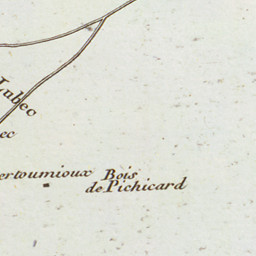 Lubec
ec
ertoumioux Bois
de Pichicard